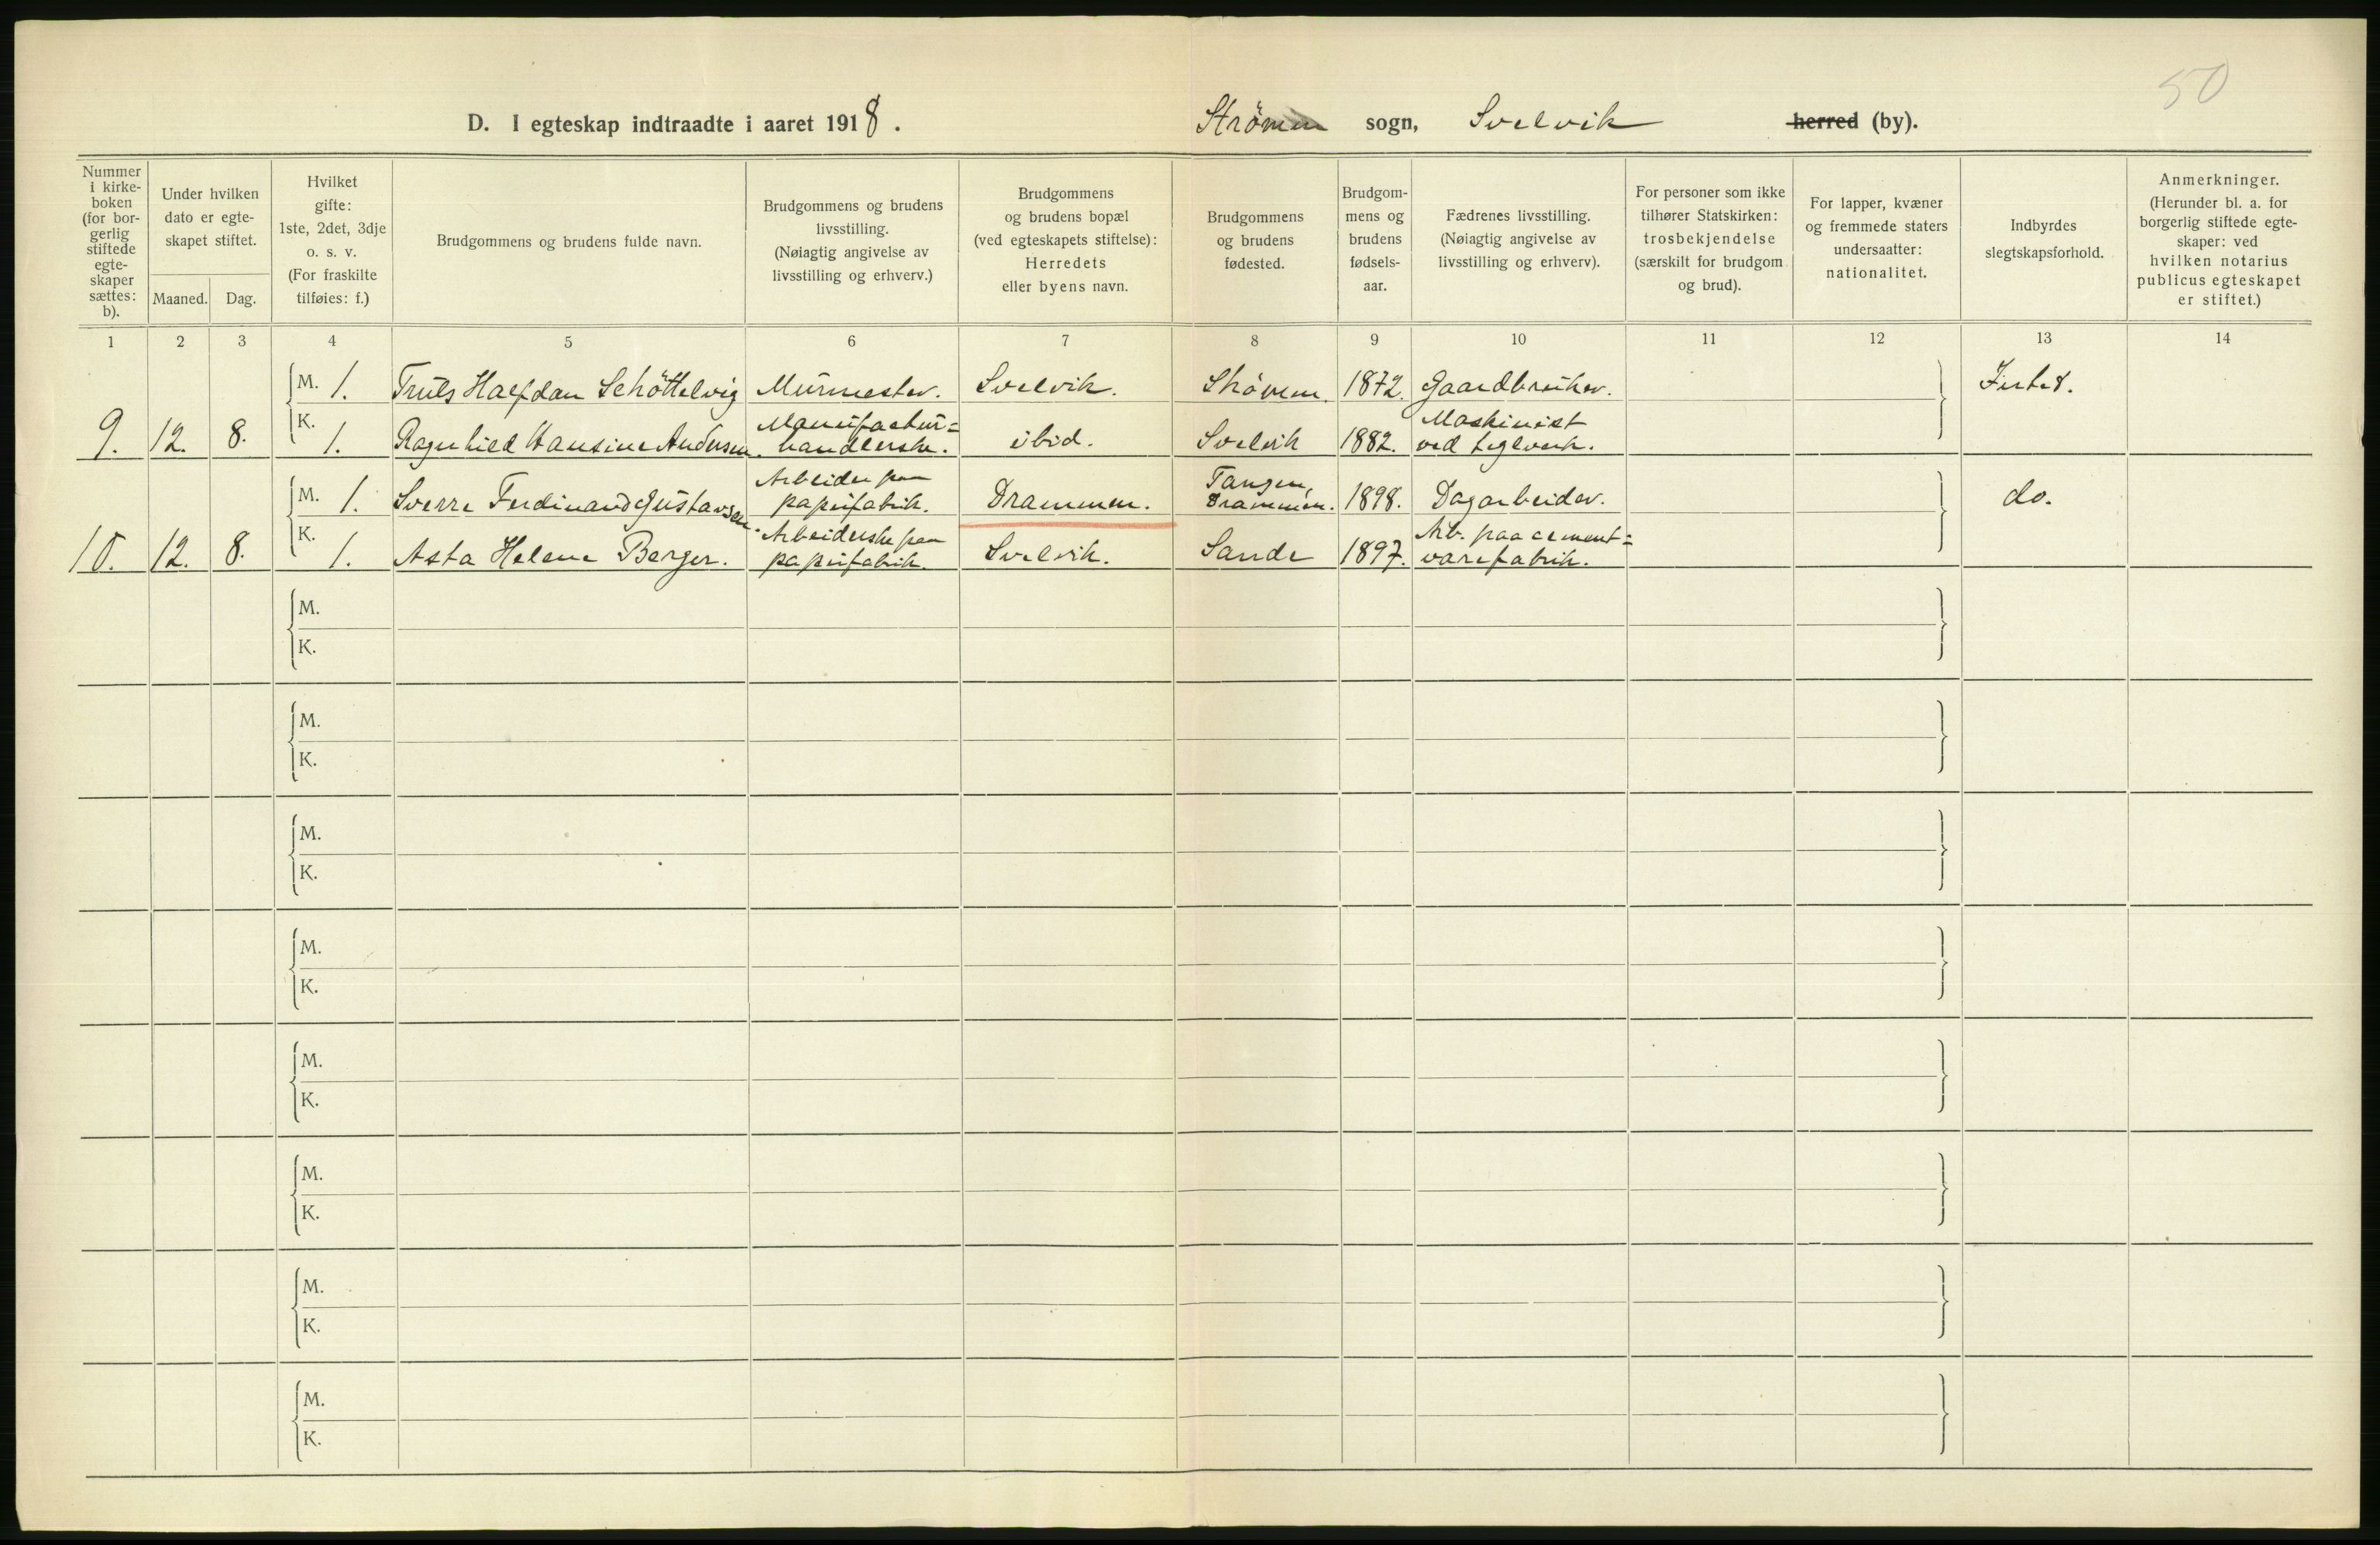 50
D. I egteskap indtraadte i aaret 1918. Strømm sogn, Svelvik herred (by).
Nummer i kirke-boken (for bor-gerlig stiftede egte-skaper sættes: b).
Under hvilken dato er egte-skapet stiftet.
Maaned. Dag.
Hvilket gifte: 1ste, 2det, 3dje o. s. v. (For fraskilte tilføies: f.)
Brudgommens og brudens fulde navn.
Brudgommens og brudens livsstilling. (Nøiagtig angivelse av livsstilling og erhverv.)
Brudgommens og brudens bopæl (ved egteskapets stiftelse): Herredets eller byens navn.
Brudgommens og brudens fødested.
Brudgom-mens og brudens fødsels-aar.
Fædrenes livsstilling. (Nøiagtig angivelse av livsstilling og erhverv).
For personer som ikke tilhører Statskirken: trosbekjendelse (særskilt for brudgom og brud).
For lapper, kvæner og fremmede staters undersaatter: nationalitet.
Indbyrdes slegtskapsforhold.
Anmerkninger. (Herunder bl. a. for borgerlig stiftede egte-skaper: ved hvilken notarius publicus egteskapet er stiftet.)
1 2 3 4 5 6 7 8 9 10 11 12 13 14
M. 1. Truls Halfdan Schöttelvig Murmester. Svelvik. Strømm. 1872. Gaardbruker. Intet.
9. 12. 8. K. 1. Ragnhild Hansine Andersen. Manufactur=handlerske. ibid. Svelvik 1882. Maskinist ved teglverk.
M. 1. Sverre Ferdinand Gustavsen. Arbeider paa papirfabrik. Drammen. Tangen, Drammen. 1898. Dagarbeider. do.
10. 12. 8. K. 1. Asta Helene Berger. Arbeiderske paa papirfabrik. Svelvik. Sande 1897. Arb. paa cement=varefabrik.
M.
K.
M.
K.
M.
K.
M.
K.
M.
K.
M.
K.
M.
K.
M.
K.